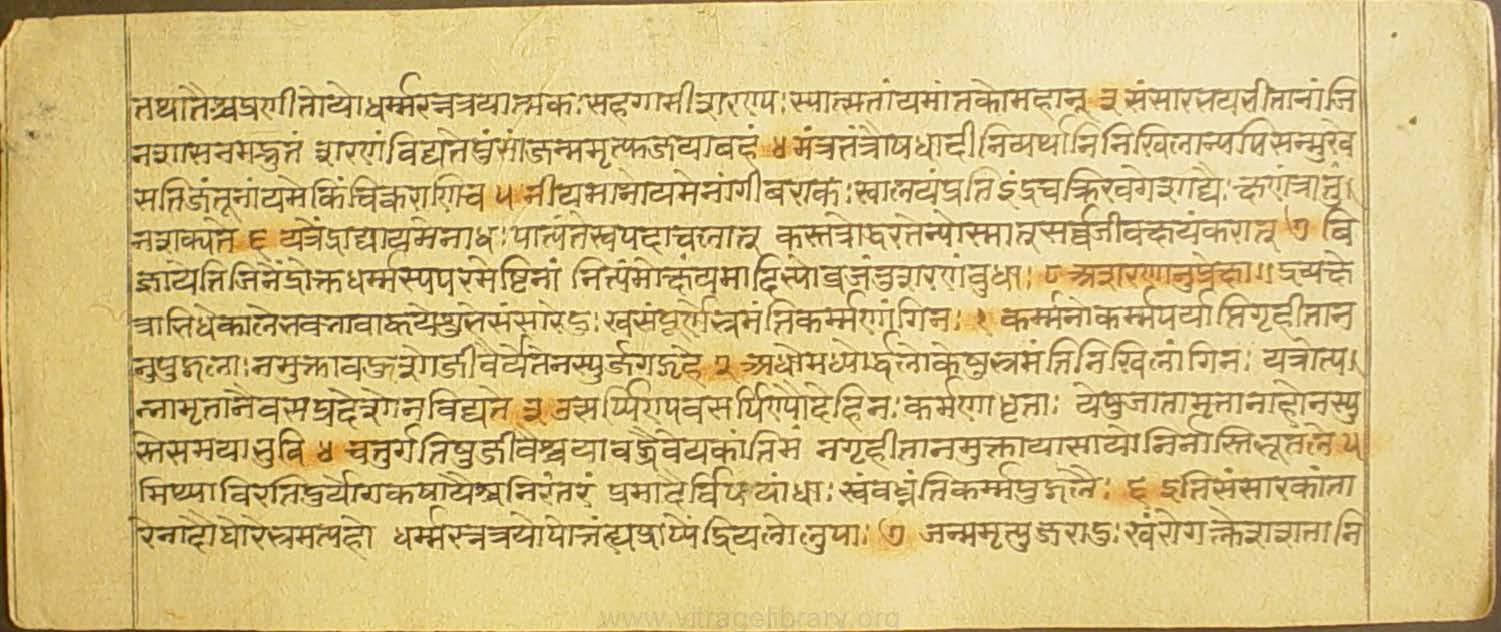 तथातैश्चप्रणीतोयोधर्म्मरत्नत्रयात्मकः सहगामीशरण्यः स्यात्सतांयमांतकोमहान् ३ संसारभयभीतानांजि
नशासनमद्भुतं शरणंविद्यतेपुंसांजन्ममृत्कजयावहं ४ मंत्रतंत्रौषधादीनिव्यर्थानिनिखिलान्यपिसन्मुखे
सतिजंतूनांयमेकिंचिकराणिच ५ नीयमानोयमेनांगीबराकः स्वालयंप्रतिइंद्रचक्रिखगेशाद्यैः क्षणंत्रातुं
नशक्यते ६ यत्रेंद्राद्यायमेनाधः पात्यंतेस्वपदाचलात् कस्तत्रोद्धरतेन्योस्मात्सर्व्वजीवक्षयंकरात् ७ वि
ज्ञायेतिजिनेंद्रोक्तधर्म्मस्यपरमेष्टिनां नित्यंमोक्षंयमादिभ्योव्रजंतुशरणंबुधाः ८ अशरणानुप्रेक्षा॥ द्रव्यक्षे
त्राभिधेकालेभवभावाह्वयेशुभेसंसारेदुःखसंपूर्णेभ्रमंतिकर्म्मणांगिनः १ कर्म्मनोकर्म्मपर्याप्तिगृहीतान
नुपुद्गलाः नमुक्ताबहुशोजीवैर्येतेनस्युर्जगद्गृहे २ अधोमध्योर्द्धलोकेषुभ्रमंतिनिखिलांगिनः यत्रोत्प
न्नामृतानैवसप्रदेशोनविद्यते ३ उत्सर्प्पिण्यवसर्पिण्योर्देहिनः कर्मणाधृताः येषुजातामृतानाहोनस्यु
स्तिसमयाभुवि ४ चतुर्गतिषुजीवैश्चयावद्ग्रैवेयकांतिमं नगृहीतानमुक्तायासायोनिर्नास्तिभूतले ५
मिथ्याविरतिदुर्योगकषायैश्चनिरंतरं प्रमादैर्विषयांधाः स्वंबध्नंतिकर्म्मपुद्गलैः ६ इतिसंसारकांता
रेनादौघोरेभ्रमत्यहो धर्म्मरत्नत्रयोपेतंत्यप्राप्येंद्रियलोलुपाः ७ जन्ममृत्युजरादुःखंरोगक्लेशशतानि
www.vitragelibrary.org